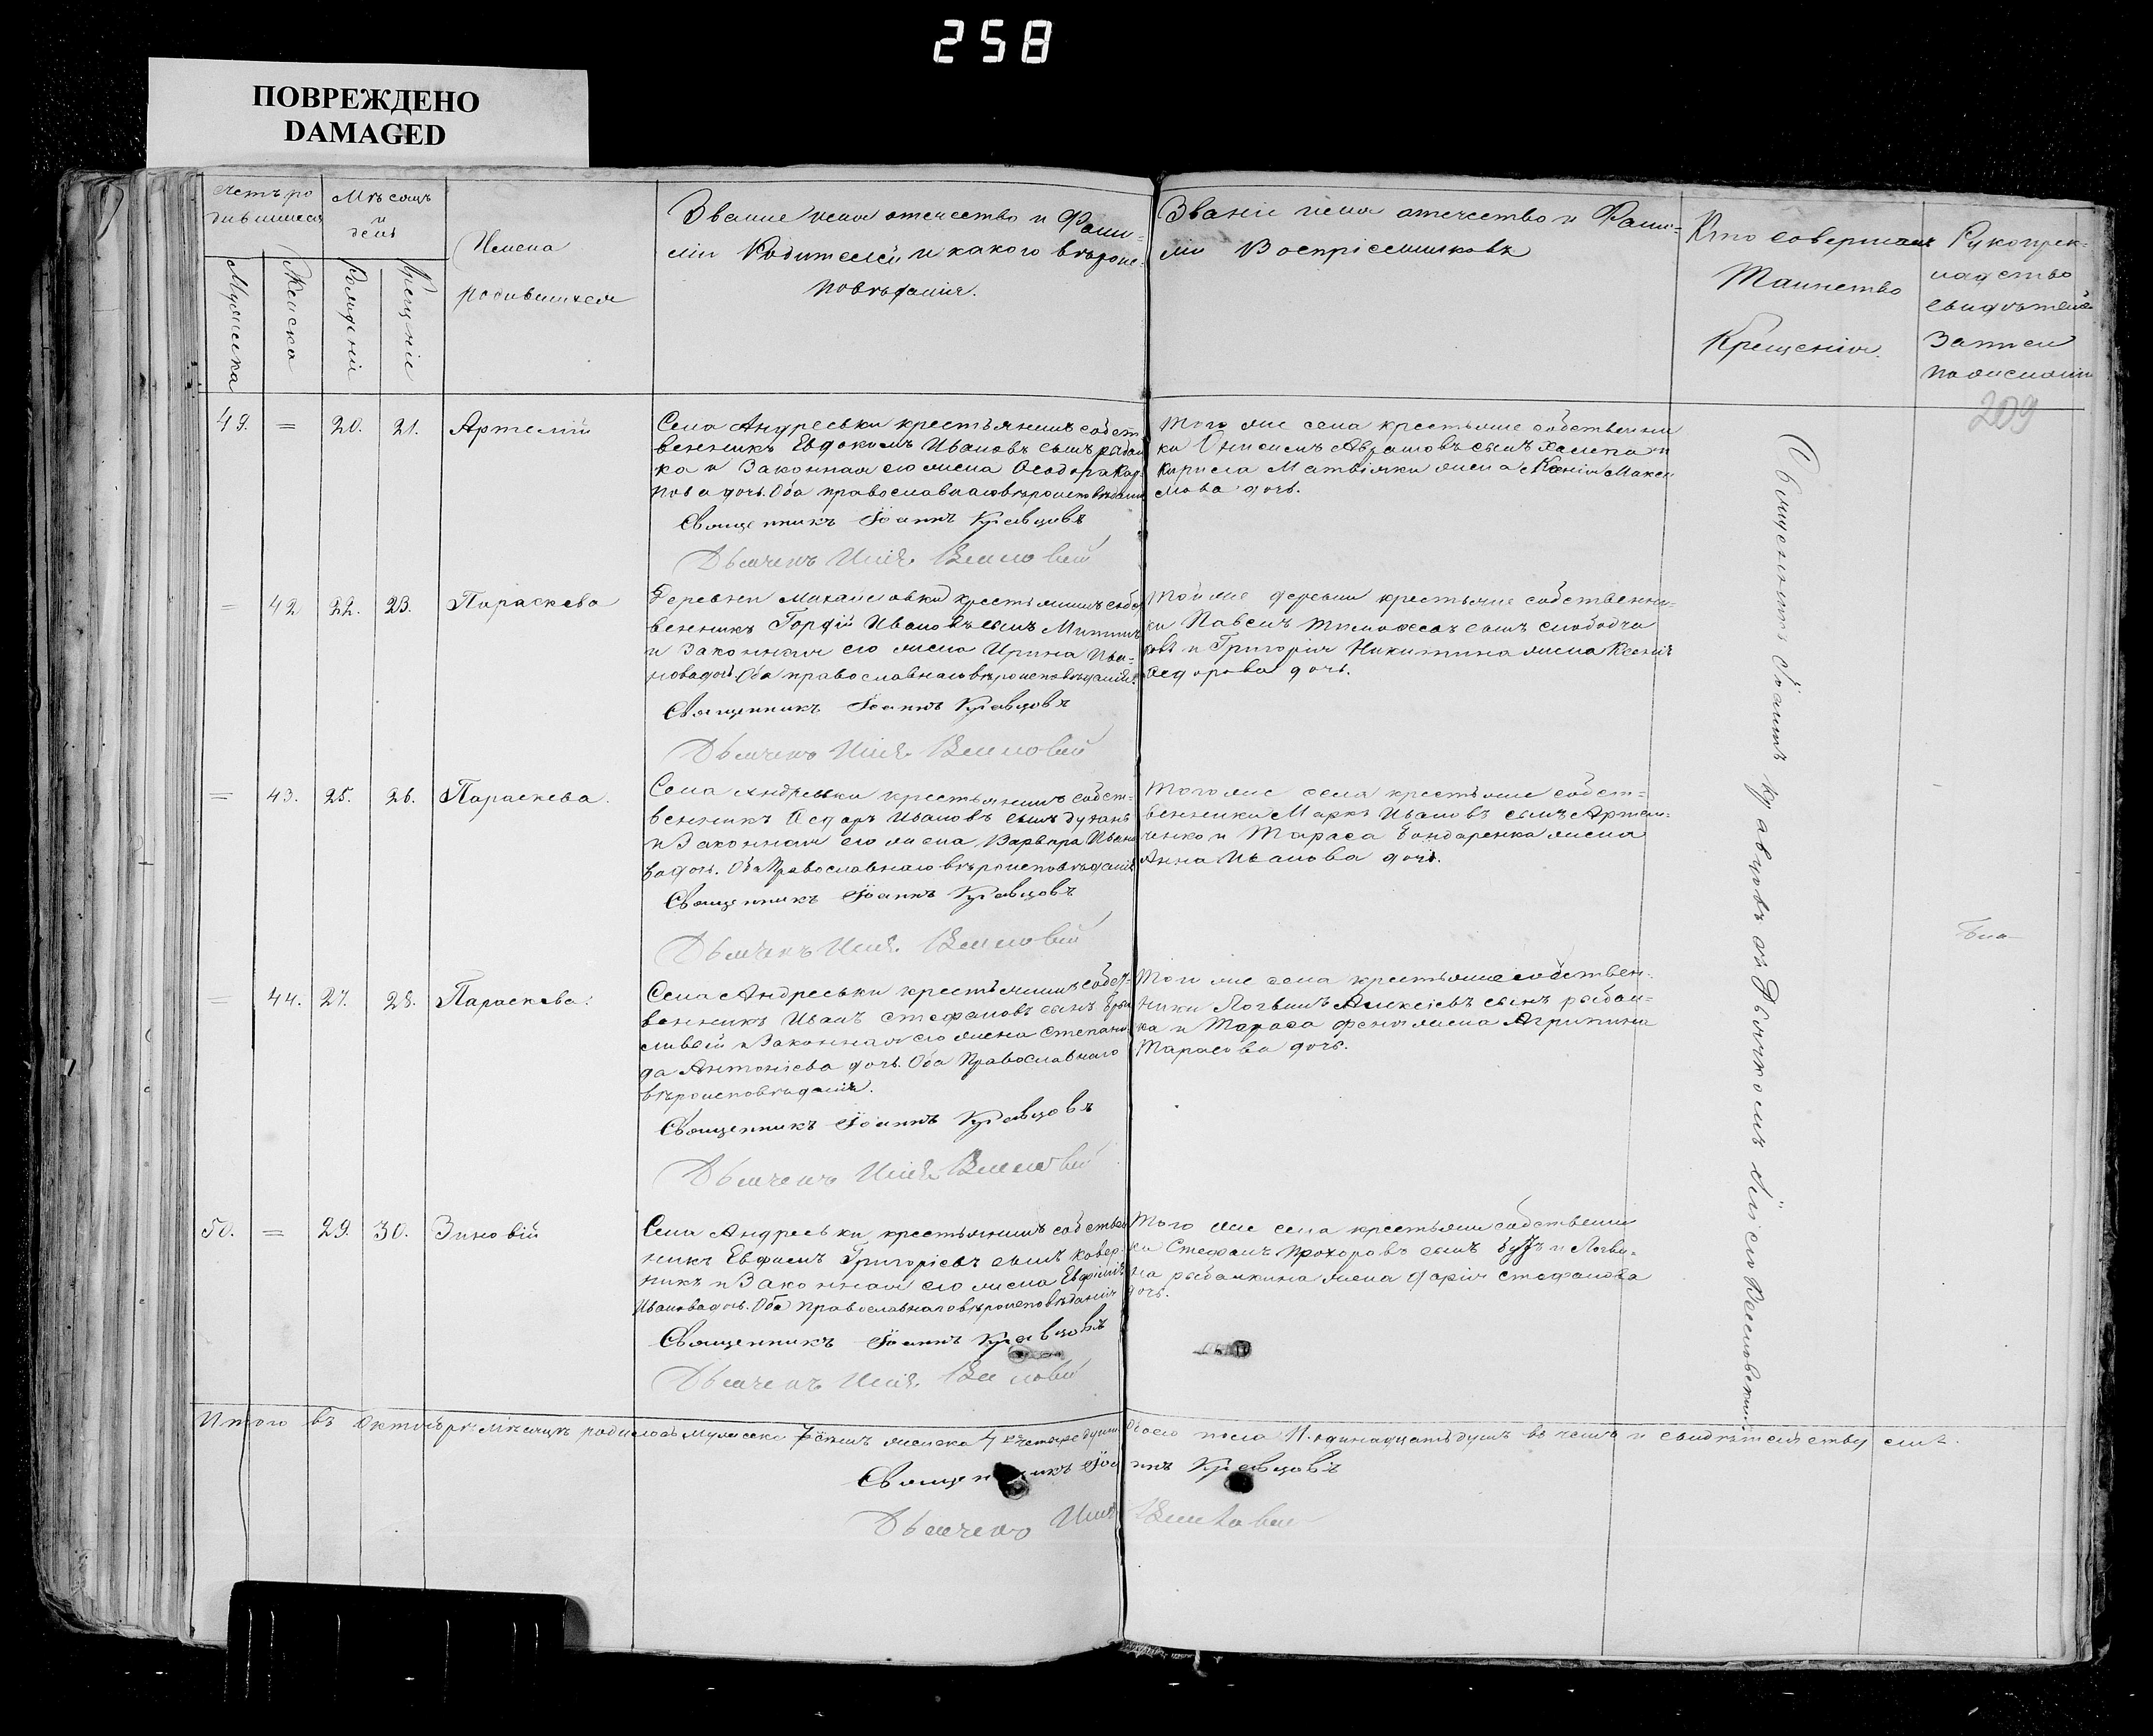 258
ПОВРЕЖДЕНО
DAMAGED
Мѣсяцъ
и
день
Имена
родившихся
Званіе имя отечество и Фами-
ліи Родителей и какого вѣроис-
повѣданія.
Званіе имя отечество и Фами-
ліи Воспріемниковъ
Кто совершалъ
Таинство
Крещенія.
Рукоприк-
ладство
свидѣтелей
Записи
по желанію
Мужеска
Женска
Рожденія
Крещенія
209
49. = 20. 21. Артемій
Села Андреевки крестьянинъ собст
венникъ Евдокимъ Ивановъ сынъ рыбал
ка и Законная его жена Ѳеодора Кар
пова дочь. Оба православнаго вѣроисповѣданія
Священникъ Іоаннъ Кравцовъ
Дьячекъ Илія
Того же села крестьяне собственни
ки Онисимъ Аврамовъ сынъ Халепа и
Кирила Матвіяки жена Ксенія Макси
мова дочь.
= 42 22. 23. Параскева
Деревни Михайловки крестьянинъ собст
венникъ Гордій Ивановъ сынъ
и Законная его жена Ирина Ива-
нова дочь. Оба православнаго вѣроисповѣданія
Священникъ Іоаннъ Кравцовъ
Дьячекъ Илія
Той же деревни крестьяне собственни-
ки Павелъ Тимофеевъ сынъ слободча
ковъ и Григорія Никитина жена Ксенія
Ѳедорова дочь.
= 43. 25. 26. Параскева.
Села Андреевки крестьянинъ собст-
венникъ Ѳедоръ Ивановъ сынъ
и Законная его жена Варвара Ивано
ва дочь. Оба Православнаго вѣроисповѣданія
Священникъ Іоаннъ Кравцовъ
Дьячекъ Илія
Того же села крестьяне собст-
венники Маркъ Ивановъ сынъ Артем-
ченко и Тараса Бондаренка жена
Анна Иванова дочь.
= 44. 27. 28. Параскева.
Села Андреевки крестьянинъ собст-
венникъ Иванъ Стефановъ сынъ
сливый и Законная его жена Степани
да Антоніева дочь. Оба Православнаго
вѣроисповѣданія.
Священникъ Іоаннъ Кравцовъ
Дьячекъ Илія
Того же села крестьяне собствен-
ники Логвинъ Алексіевъ сынъ рыбал-
ка и Тараса жена Агрипина
Тарасова дочь.
50. = 29. 30. Зиновій
Села Андреевки крестьянинъ собствен
никъ Евфимъ Григоріевъ сынъ Ковер
никъ и Законная его жена Евфимія
Иванова дочь. Оба православнаго вѣроисповѣданія
Священникъ Іоаннъ Кравцовъ
Дьячекъ Илія
Того же села крестьяне собственни
ки Стефанъ Прохоровъ сынъ и Логви-
на рыбалкина жена Дарія Стефанова
дочь.
Священникъ Іоаннъ Кравцовъ съ Дьячкомъ Иліею
Итого въ Октобрѣ мѣсяцѣ родилось мужеска 7 женска 4 четыре души Обоего пола 11. одинадцать душъ въ чемъ и свидѣтельствуемъ.
Священникъ Іоаннъ Кравцовъ
Дьячекъ Илія